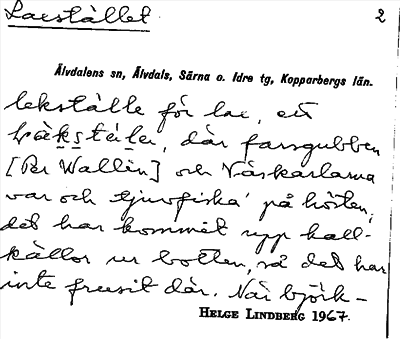 Laxstället 2
Älvdalens sn, Älvdals, Särna o. Idre tg, Kopparbergs län.
lekställe för lax, ett
där farsgubben
[Per Wallin] och Näskarlarna
var och tjuvfiska' på hösten,
det har kommit upp kall-
källor ur botten, så det har
inte frusit där. När björk-
HELGE LINDBERG 1967.